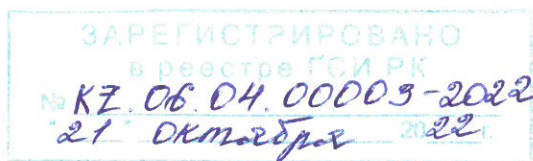 ЗАРЕГИСТРИРОВАНО
в реестре ГСИ РК
№ KZ.06.04.00009-2022
"21" октября 2022 г.